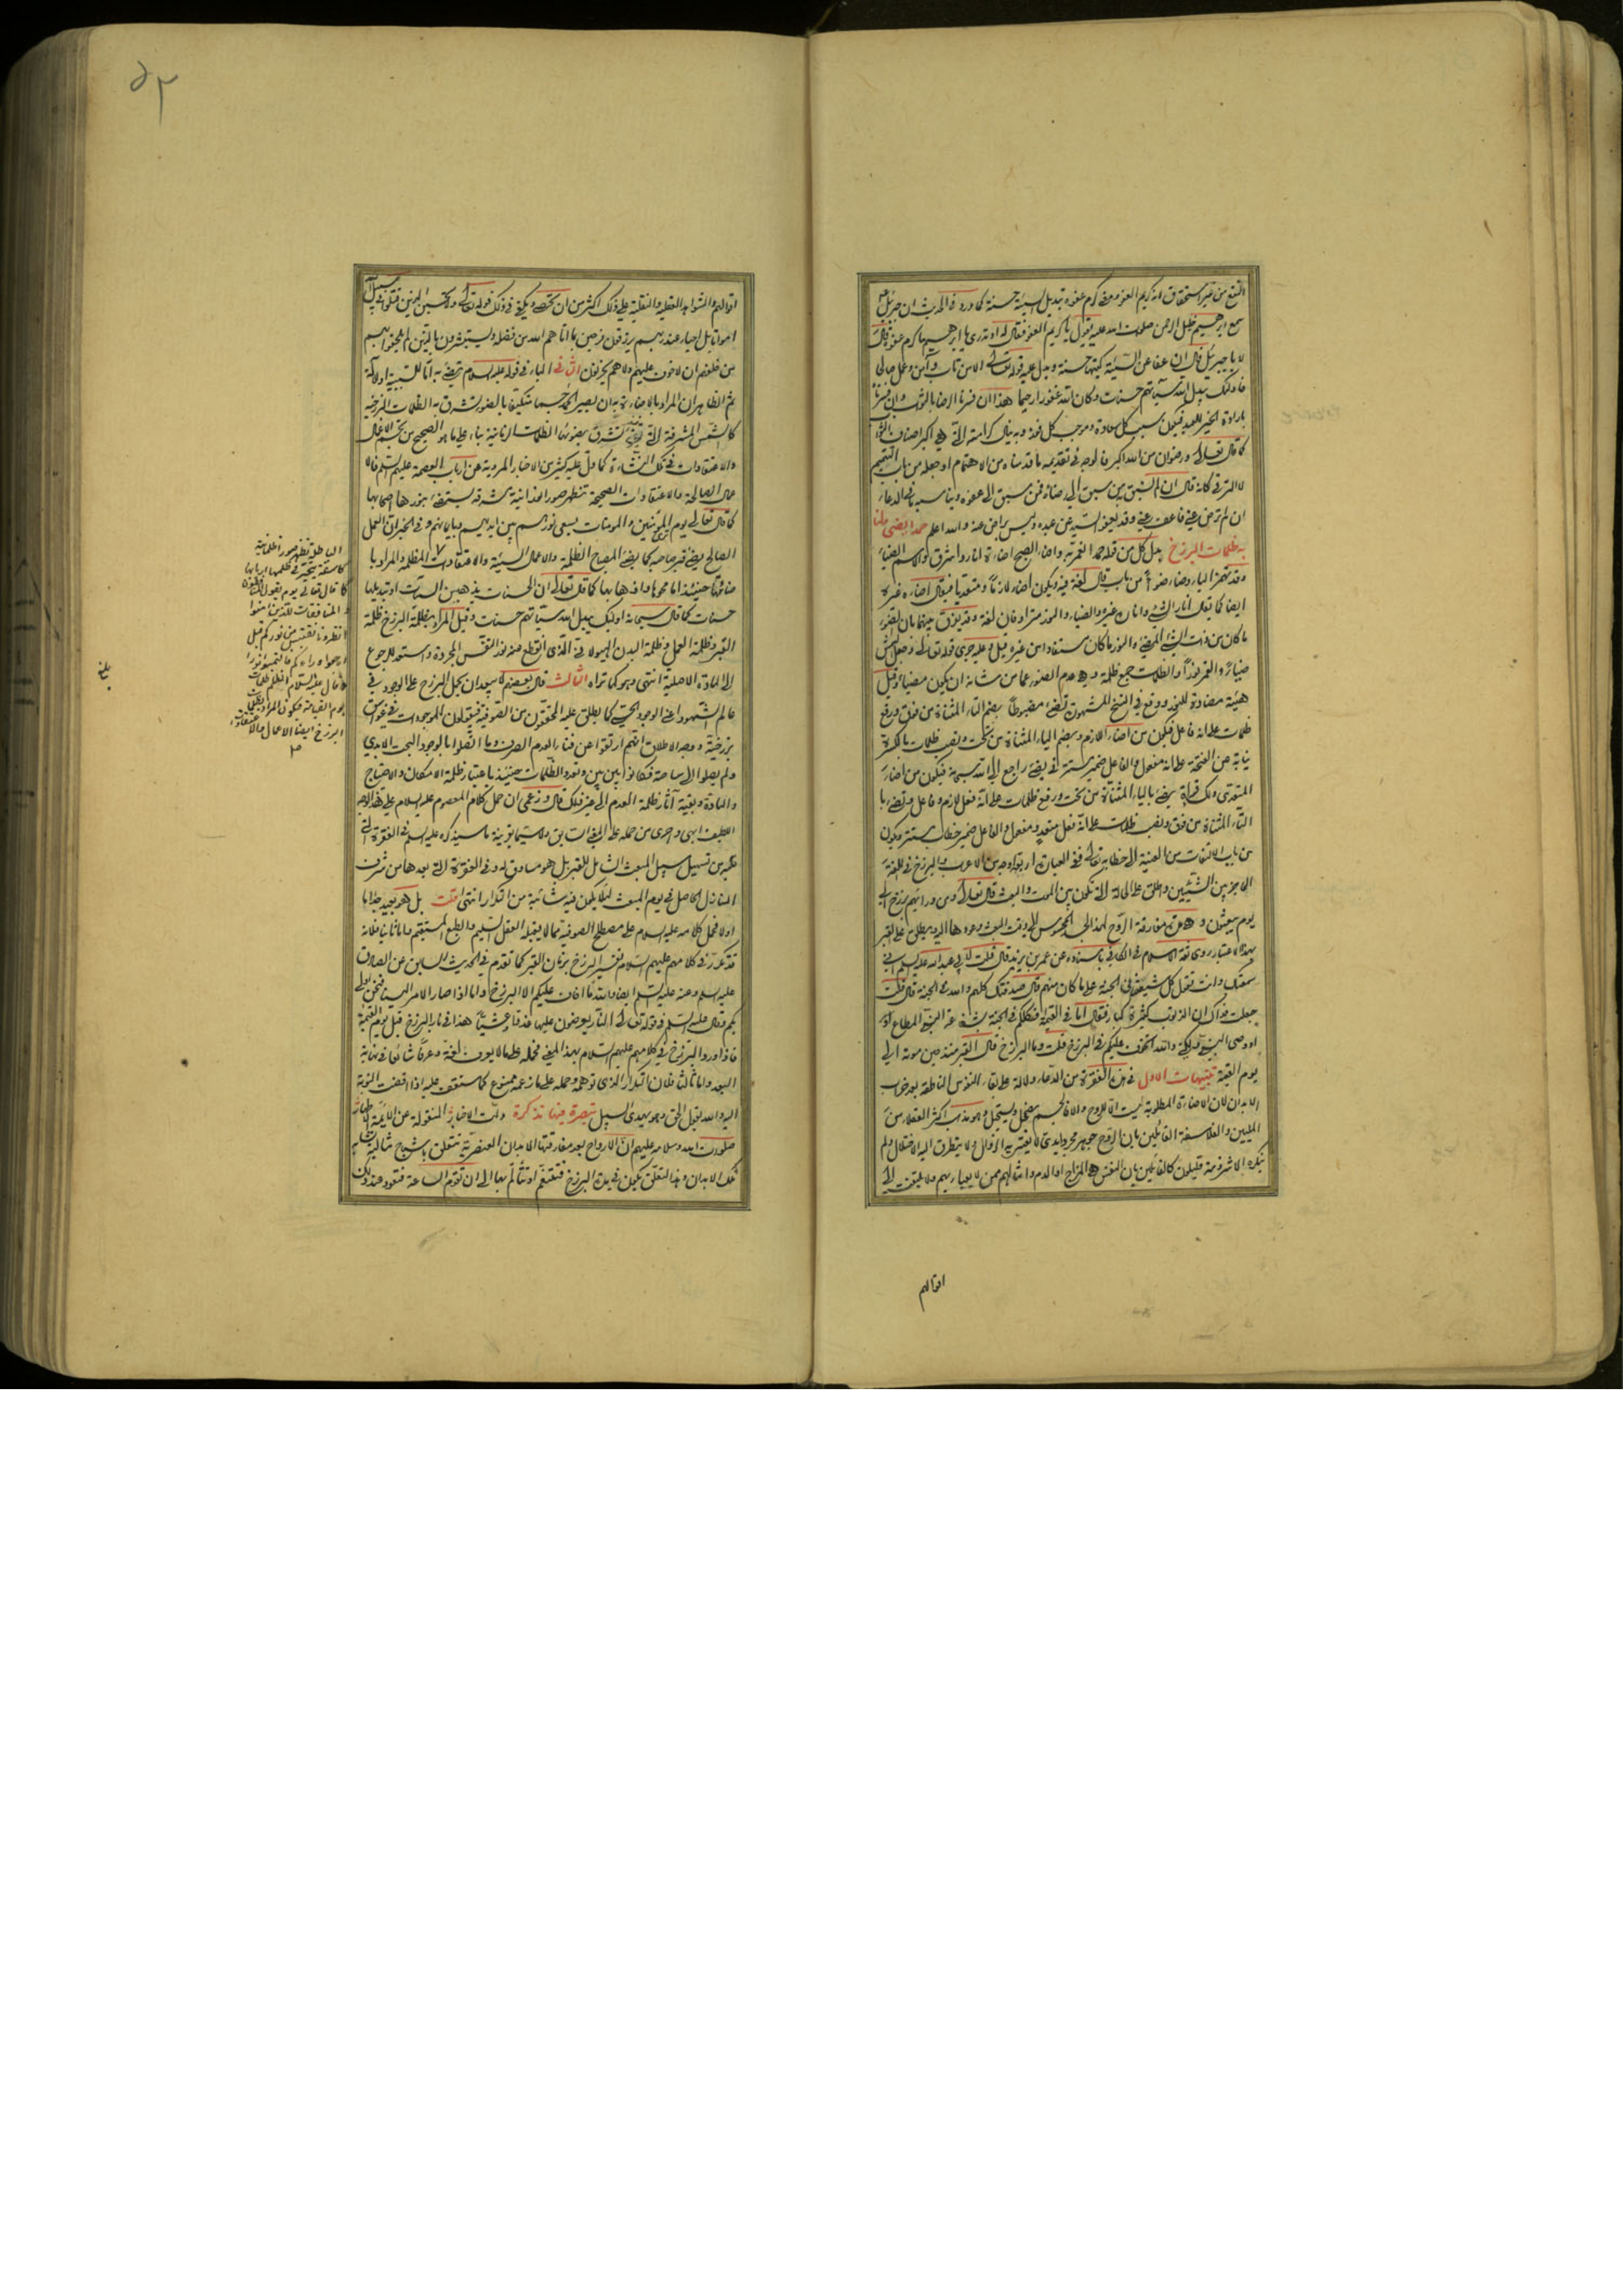 النفع من غير استحقاق انه كريم العفو ومعنى كرم عفوه تبديل السيئة حسنة كما ورد في الحديث ان جبرئيل
سمع ابرهيم خليل الرحمن صلوات الله عليه يقول يا كريم العفو فقال له اوتدري يا ابرهيم ما كرم عفوه فقال
لا يا جبرئيل قال ان عفا عن السيئة كتبها حسنة ويدل عليه قوله تعالى الا من تاب وآمن وعمل صالحا
فاولئك يبدل الله سيآتهم حسنات وكان الله غفورا رحيما هذا ان فسرنا الرضا بالثواب وان فسرنا
بارادة الخير للعبد فيكون سبب كل سعادة وموجب كل فوز وبه ينال كرامته التي هي اكبر اصناف الثواب
كما قال تعالى ورضوان من الله اكبر فالوجه في تقديمه ما قدمناه من الاهتمام او جعله من باب التتميم
لا الترقي كانه قال ان لم اكن ممن سبق الى رضاك فمن سبق الى عفوه ويناسبه ما في الدعاء
ان لم ترض عني فاعف عني وقد يعفو السيد عن عبده وليس براض عنه والله اعلم حمدا يضيء لنا
به ظلمات البرزخ بدل كل من قوله حمدا نعمر به واضاء الصبح اضاءة انار واشرق والاسم الضياء
وقد تهمز الياء وضاء ضوأ من باب قال لغة فيه ويكون اضاء لازما ومتعديا فيقال اضاءه غيره
ايضا كما يقال انار الشيء واناره غيره والضياء والنور مترادفان لغة وقد يفرق بينهما بان الضوء
ما كان من ذات الشيء المضيء والنور ما كان مستفادا من غيره قيل وعليه جرى قوله تعالى وجعل الشمس
ضياء والقمر نورا والظلمات جمع ظلمة وهي عدم الضوء عما من شانه ان يكون مضيئا وقيل
هيئة مضادة للنور ووقع في النسخ المشهورة تضيء مضبوطا بضم التاء المثناة من فوق ورفع
ظلمات على انه فاعل فيكون من اضاء اللازم وبضم الياء المثناة من تحت ونصب ظلمات بالكسرة
نيابة عن الفتحة على انه مفعول والفاعل ضمير مستتر في يضيء راجع الى الله سبحانه فيكون من اضاء
المتعدي ولك قراءة يضيء بالياء المثناة من تحت ورفع ظلمات على انه فعل لازم وفاعل وتضيء با
التاء المثناة من فوق ونصب ظلمات على انه فعل متعد ومفعول والفاعل ضمير خطاب مستتر ويكون
من باب الالتفات من الغيبة الى خطابه تعالى ففي العبارة اربعة اوجه من الاعراب والبرزخ في اللغة
الحاجز بين الشيئين واطلق على الحالة التي تكون بين الموت والبعث قال تعالى ومن ورائهم برزخ الى
يوم يبعثون وهو مدة مفارقة الروح لهذا البدن المحسوس الى وقت البعث وعودها اليه ويطلق على القبر
بهذا الاعتبار روى ثقة الاسلام في الكافي باسناده عن عمرو بن يزيد قال قلت لابي عبد الله عليه السلام اني
سمعتك وانت تقول كل شيعتنا في الجنة على ما كان منهم قال صدقتك كلهم والله في الجنة قال قلت
جعلت فداك ان الذنوب كثيرة كبار فقال اما في القيمة فكلكم في الجنة بشفاعة النبي المطاع او
او وصي النبي ولكني والله اتخوف عليكم في البرزخ قلت وما البرزخ قال القبر منذ حين موته الى
يوم القيمة تنبيهات الاول في هذه الفقرة من الدعاء دلالة على بقاء النفوس الناطقة بعد خراب
الابدان لان الاضاءة المطلوبة ليست الا للروح والا فالجسم يضمحل ويستحيل وهو مذهب اكثر العقلاء من
المليين والفلاسفة القائلين بان الروح جوهر مجرد ابدي لا يعتريه الزوال ولا يتطرق اليه الاختلال ولم
ينكره الا شرذمة قليلون كالقائلين بان النفس هي المزاج او الدم وامثالهم ممن لا يعبأ بهم ولا يلتفت الى
اقوالهم
٥٣
اقوالهم والشواهد العقلية والنقلية على ذلك اكثر من ان تحصى ويكفي في ذلك قوله تعالى ولا تحسبن الذين قتلوا في سبيل الله
امواتا بل احياء عند ربهم يرزقون فرحين بما آتاهم الله من فضله ويستبشرون بالذين لم يلحقوا بهم
من خلفهم ان لا خوف عليهم ولا هم يحزنون الثاني الباء في قوله عليه السلام تضيء به اما للسببية او للآلة
ثم الظاهر ان المراد بالاضاءة به ان يصير الحمد جسما متكيفا بالضوء تشرق به الظلمات البرزخية
كالشمس المشرقة التي تشرق بضوئها الظلمات الزمانية بناء على ما هو الصحيح من تجسم الاعمال
والاعتقادات في تلك النشاءة كما دل عليه كثير من الاخبار المروية عن ارباب العصمة عليهم السلم فالا
عمال الصالحة والاعتقادات الصحيحة تظهر صورا نورانية مشرقة يستضيء بنورها اصحابها
كما قال تعالى يوم ترى المؤمنين والمومنات يسعى نورهم بين ايديهم وبايمانهم وفي الخبر ان العمل
الصالح يضيء قبر صاحبه كما يضيء المصباح الظلمة والاعمال السيئة والاعتقادات المظلمة والمراد با
ضائتها حينئذ اما محوها واذهابها بها كما قال تعالى ان الحسنات يذهبن السيآت او تبديلها
حسنات كما قال سبحانه اولئك يبدل الله سيئاتهم حسنات وقيل المراد بظلمة البرزخ ظلمة
القبر وظلمة العمل وظلمة البدن الهيولانية الذي انقطع عنه نور النفس المجردة واستعد للرجوع
الى المادة الاصلية انتهى وهو كما تراه الثالث قال بعضهم لا يبعد ان يحمل البرزخ على الوجود في
عالم الشهود اعني الوجود الحسي كما يطلق عليه المحققون من الصوفية فيقولون الموجودات في غواسق
برزخية ووجه الاطلاق انهم ارتقوا عن فناء العدم الصرف وما اتصلوا بالوجود البحت الابدي
ولم يصلوا الى ساحته فكانوا بين بين وتعدد الظلمات حينئذ باعتبار ظلمة الامكان والاحتياج
والمادة وبقية آثار ظلمة العدم الى غير ذلك قال وزعمي ان حمل كلام المعصوم عليه السلام على هذا الوجه
اللطيف ابهى واحرى من حمله على المعنى السابق ولا سيما بقرينة ما سيذكره عليه السلم في الفقرة التي
عليه من تسهيل سبيل المبعث الشامل للقبر بل هو مساوق له وفي الفقرة التي بعدها من شرف
المنازل الحاصل في يوم المبعث لئلا يكون فيه شائبة من التكرار انتهى قلت بل هو بعيد جدا اما
اولا فحمل كلامه عليه السلام على مصطلح الصوفية مما لا يقبله العقل السليم والطبع المستقيم واما ثانيا فلانه
قد تكرر في كلامهم عليهم السلام تفسير البرزخ بزمان القبر كما تقدم في الحديث السابق عن الصادق
عليه السلم وعنه عليه السلم ايضا والله ما اخاف عليكم الا البرزخ واما اذا صار الامر الينا فنحن اولى
بكم وقال عليه السلم في قوله تعالى النار يعرضون عليها غدوا وعشيا هذا في نار البرزخ قبل يوم القيمة
فاذا ورد البرزخ في كلامهم عليهم السلام بهذا المعنى فحمله على ما لا يعرف لغة وعرفا شائعا في نهاية
البعد واما ثالثا فلان التكرار الذي توهمه وحمله على ما زعمه ممنوع كما ستقف عليه اذا افضت النوبة
اليه والله يقول الحق وهو يهدي السبيل تبصرة فيها تذكرة دلت الاخبار المنقولة عن الائمة الاطهار
صلوات الله وسلامه عليهم ان الارواح بعد مفارقتها الابدان العنصرية تتعلق باشباح مثالية تشابه
تلك الابدان وهذا التعلق يكون في مدة البرزخ فتتنعم او تتألم بها الى ان تقوم الساعة فتعود عند ذلك
الباطلة تظهر صورا ظلمانية
كاسفة يتحير في ظلمها اربابها
كما قال تعالى يوم يقول المنافقون
والمنافقات للذين امنوا
انظرونا نقتبس من نوركم قيل
ارجعوا وراءكم فالتمسوا نورا
وقال عليه السلام الظلم ظلمات
يوم القيامة فيكون المراد بظلمات
البرزخ ايضا الاعمال والاعتقادات
صح
بلغ